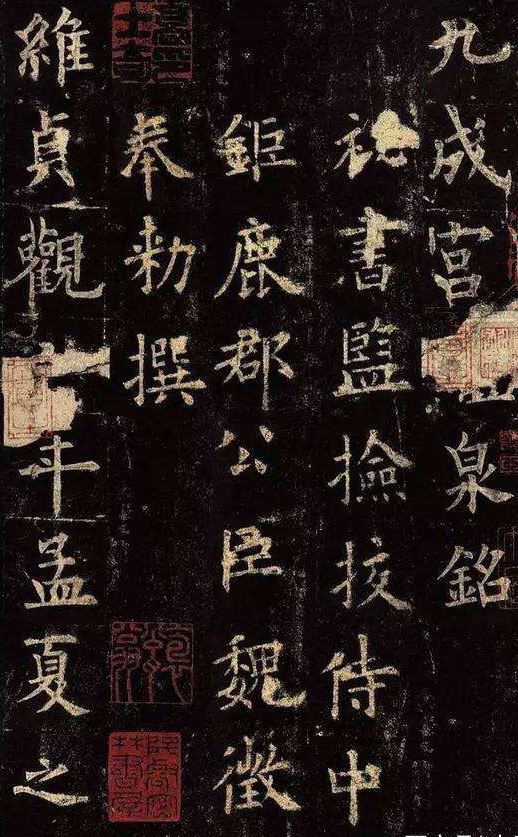 九成宮泉銘
祕書監撿挍侍中
鉅鹿郡公臣魏徵
奉勑撰
維貞觀年孟夏之